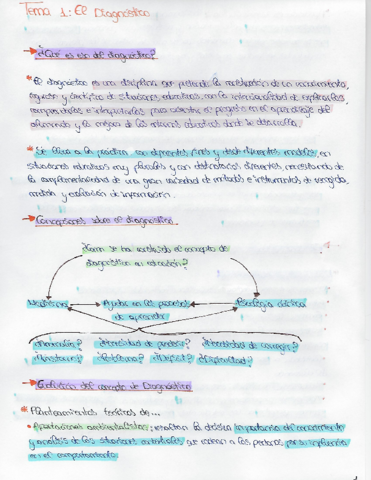 Tema 1: El Diagnóstico
¿Qué es eso del diagnóstico?
* El diagnóstico es una disciplina que pretende la realización de un conocimiento
riguroso y científico de situaciones educativas, con la intencionalidad de explicarlas,
comprenderlas e interpretarlas para el progreso en el aprendizaje del
alumnado y la mejora de los entornos educativos donde se desarrolla.
* Se lleva a la práctica con diferentes fines y desde diferentes modelos, en
situaciones educativas muy plurales y con destinatarios diferentes, necesitando de
la complementariedad de una gran variedad de métodos e instrumentos de recogida,
análisis y de información.
Concepciones sobre el diagnóstico
¿Cómo se ha construido el concepto de
diagnóstico en educación?
Medicina
Ayuda en los procesos
de aprender
Psicología clínica
¿Necesidad de ¿Necesidad de
¿Trastorno? ¿Problema? ¿Déficit? ¿Especialidad?
Evolución del concepto de Diagnóstico
* Planteamientos teóricos de...
• Aportaciones ambientalistas: resaltan la clásica importancia del conocimiento
y análisis de las situaciones ambientales que rodean a las personas, pues influencia
en el comportamiento.